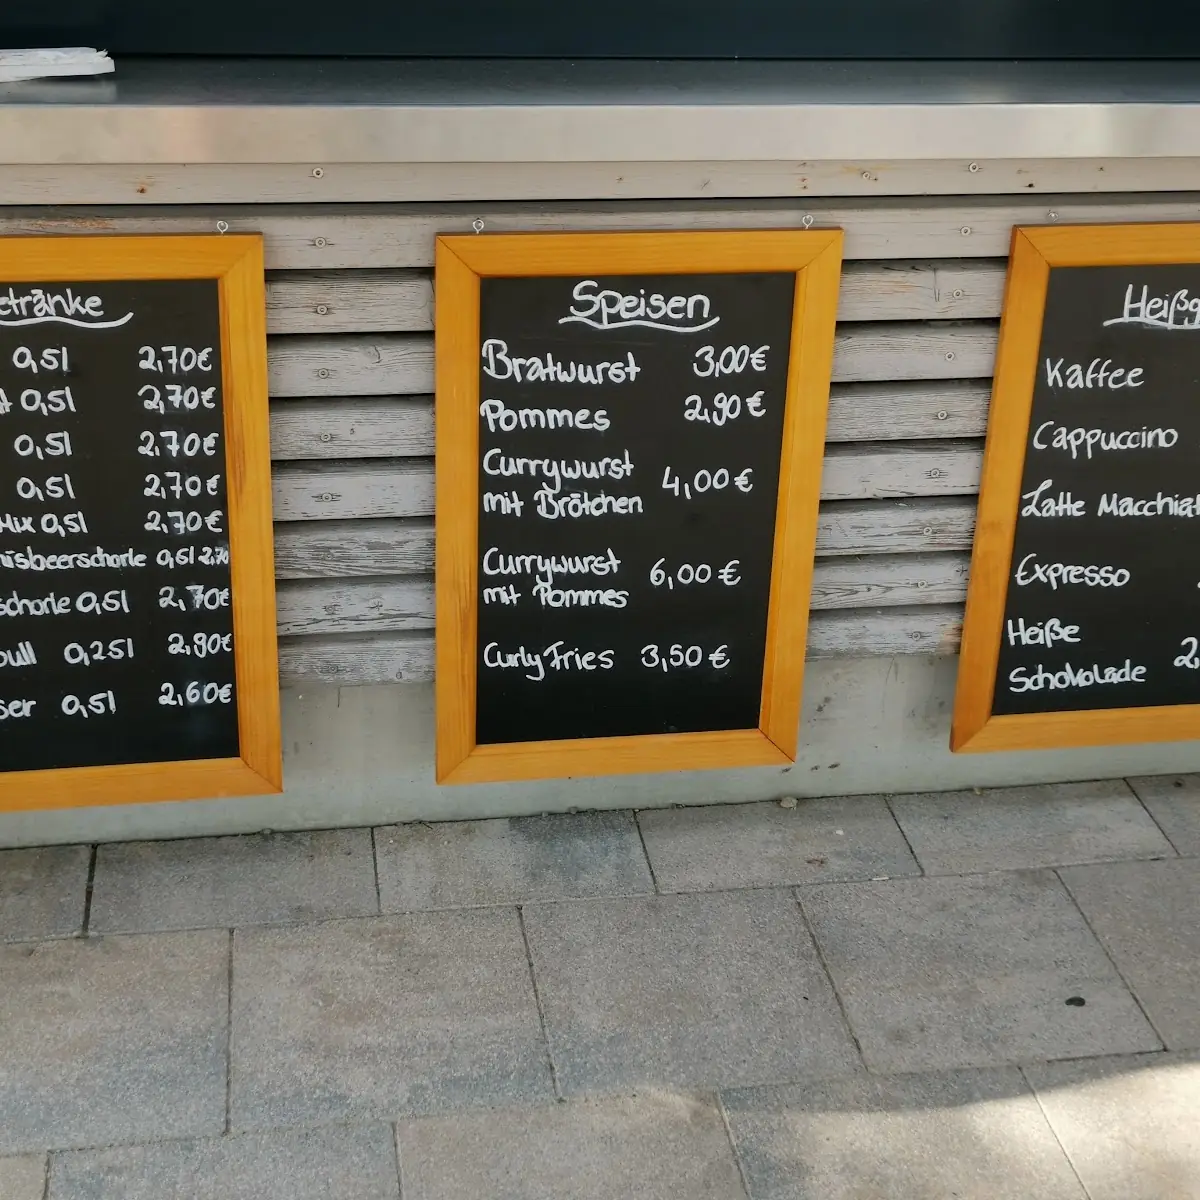 etränke
0,5l 2,70€
t 0,5l 2,70€
0,5l 2,70€
0,5l 2,70€
Mix 0,5l 2,70€
nisbeerschorle 0,5l 2,70
schorle 0,5l 2,70€
bull 0,25l 2,90€
ser 0,5l 2,60€
Speisen
Bratwurst 3,00€
Pommes 2,90€
Currywurst
mit Brötchen 4,00€
Currywurst
mit Pommes 6,00€
Curly Fries 3,50€
Heißg
Kaffee
Cappuccino
Latte Macchiat
Expresso
Heiße
Schokolade 2,